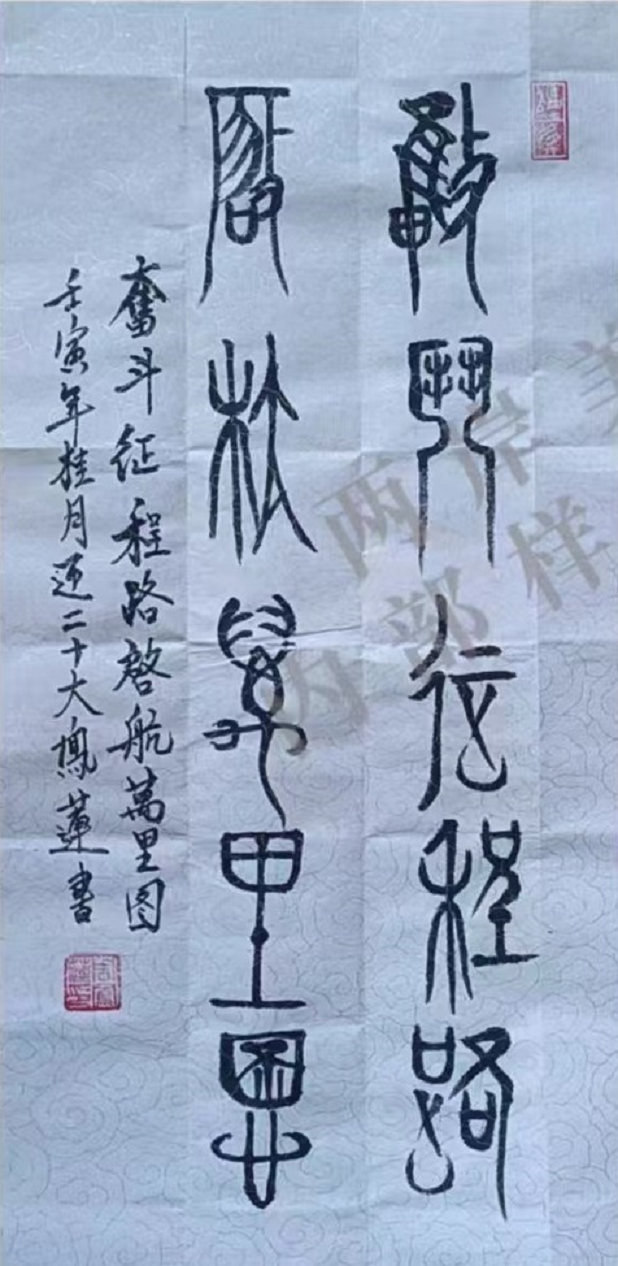 奮鬥征程路
啓航萬里圖
奮斗征程路啓航萬里图
壬寅年桂月迎二十大鳳蓮書
两岸美
内部样